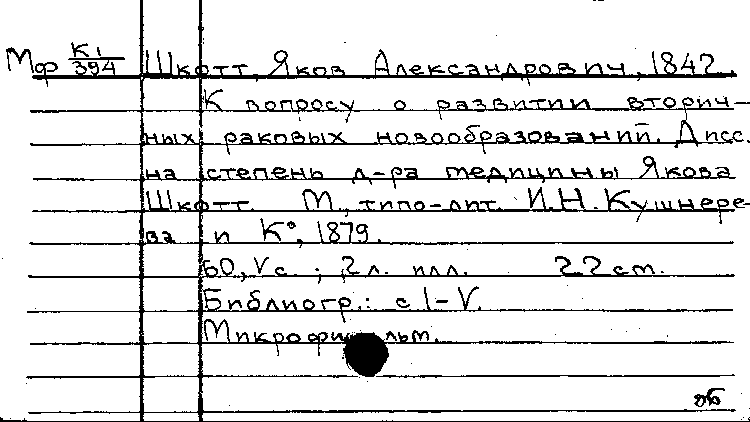 Мф К1/394 Шкотт, Яков Александрович, 1842.
К вопросу о развитии вторич-
ных раковых новообразований. Дисс.
на степень д-ра медицины Якова
Шкотт. М., типо-лит. И.Н. Кушнере-
ва и К°, 1879.
60, V с.; 2 л. илл. 22 см.
Библиогр.: с. I-V.
Микрофильм.